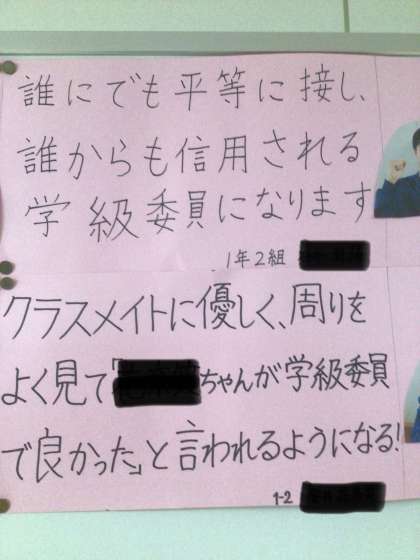 誰にでも平等に接し、
誰からも信用される
学級委員になります
1年2組
クラスメイトに優しく、周りを
よく見て「ちゃんが学級委員
で良かった」と言われるようになる!
1-2